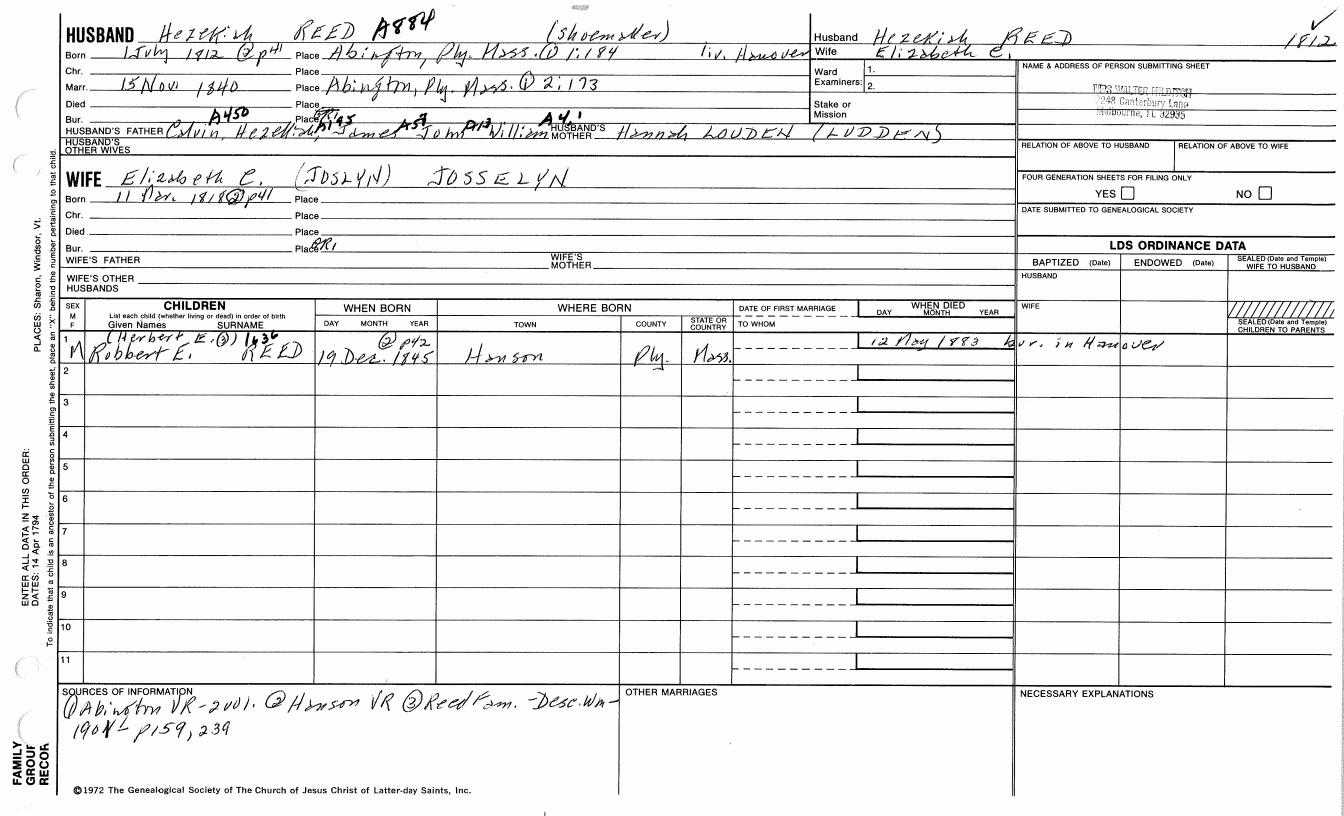 HUSBAND Hezekiah REED A884 (Shoemaker)
Born 1 July 1812 ② p41 Place Abington, Ply. Mass. ① 1:184 liv. Hanover
Chr. Place
Marr. 15 Nov. 1840 Place Abington, Ply. Mass. ① 2:173
Died Place
Bur. Place
A450 A195 A57 A13 A4,1
HUSBAND'S FATHER Calvin, Hezekiah, James, John, William HUSBAND'S MOTHER Hannah LOUDEN (LUDDEN)
HUSBAND'S OTHER WIVES
WIFE Elizabeth C. (JOSLYN) JOSSELYN
Born 11 Mar. 1818 ② p41 Place
Chr. Place
Died Place
Bur. Place GR1
WIFE'S FATHER WIFE'S MOTHER
WIFE'S OTHER HUSBANDS
Husband Hezekiah REED 1812
Wife Elizabeth C.
Ward Examiners: 1.
2.
Stake or Mission
NAME & ADDRESS OF PERSON SUBMITTING SHEET
MRS WALTER
Canterbury Lane
Melbourne, FL 32935
RELATION OF ABOVE TO HUSBAND RELATION OF ABOVE TO WIFE
FOUR GENERATION SHEETS FOR FILING ONLY
YES NO
DATE SUBMITTED TO GENEALOGICAL SOCIETY
LDS ORDINANCE DATA
BAPTIZED (Date) ENDOWED (Date) SEALED (Date and Temple) WIFE TO HUSBAND
HUSBAND
WIFE
SEALED (Date and Temple) CHILDREN TO PARENTS
SEX M F
CHILDREN
List each child (whether living or dead) in order of birth
Given Names SURNAME
WHEN BORN
DAY MONTH YEAR
WHERE BORN
TOWN COUNTY STATE OR COUNTRY
DATE OF FIRST MARRIAGE
TO WHOM
WHEN DIED
DAY MONTH YEAR
1 (Herbert E. ③) 1436 ② p42
M Robbert E. REED 19 Dec. 1845 Hanson Ply. Mass. 12 May 1883 bur. in Hanover
2
3
4
5
6
7
8
9
10
11
SOURCES OF INFORMATION
① Abington VR-2vol. ② Hanson VR ③ Reed Fam. -Desc. Wm-
p159, 239
OTHER MARRIAGES
NECESSARY EXPLANATIONS
©1972 The Genealogical Society of The Church of Jesus Christ of Latter-day Saints, Inc.
PLACES: Sharon, Windsor, Vt.
ENTER ALL DATA IN THIS ORDER:
DATES: 14 Apr 1794
To indicate that a child is an ancestor of the person submitting the sheet, place an "X" behind the number pertaining to that child.
FAMILY
GROUP
RECOR